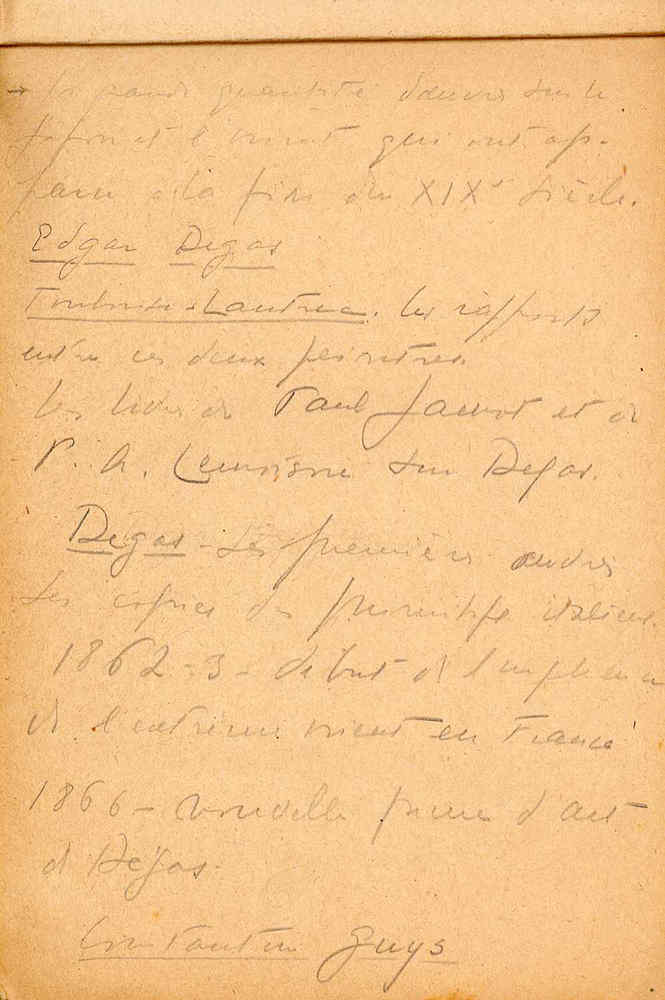 → la grande quantité d'œuvres sur le
Japon et l'orient qui ont ap-
paru à la fin du XIXe siècle.
Edgar Degas
Toulouse-Lautrec. les rapports
entre ces deux peintres.
les livres de Paul Jamot et de
P. A. Lemoisne sur Degas.
Degas - Ses premières œuvres
Ses copies des primitifs italiens.
1862-3 - début de l'influence
de l'extrême orient en France
1866 - nouvelle forme d'art
de Degas.
Constantin Guys